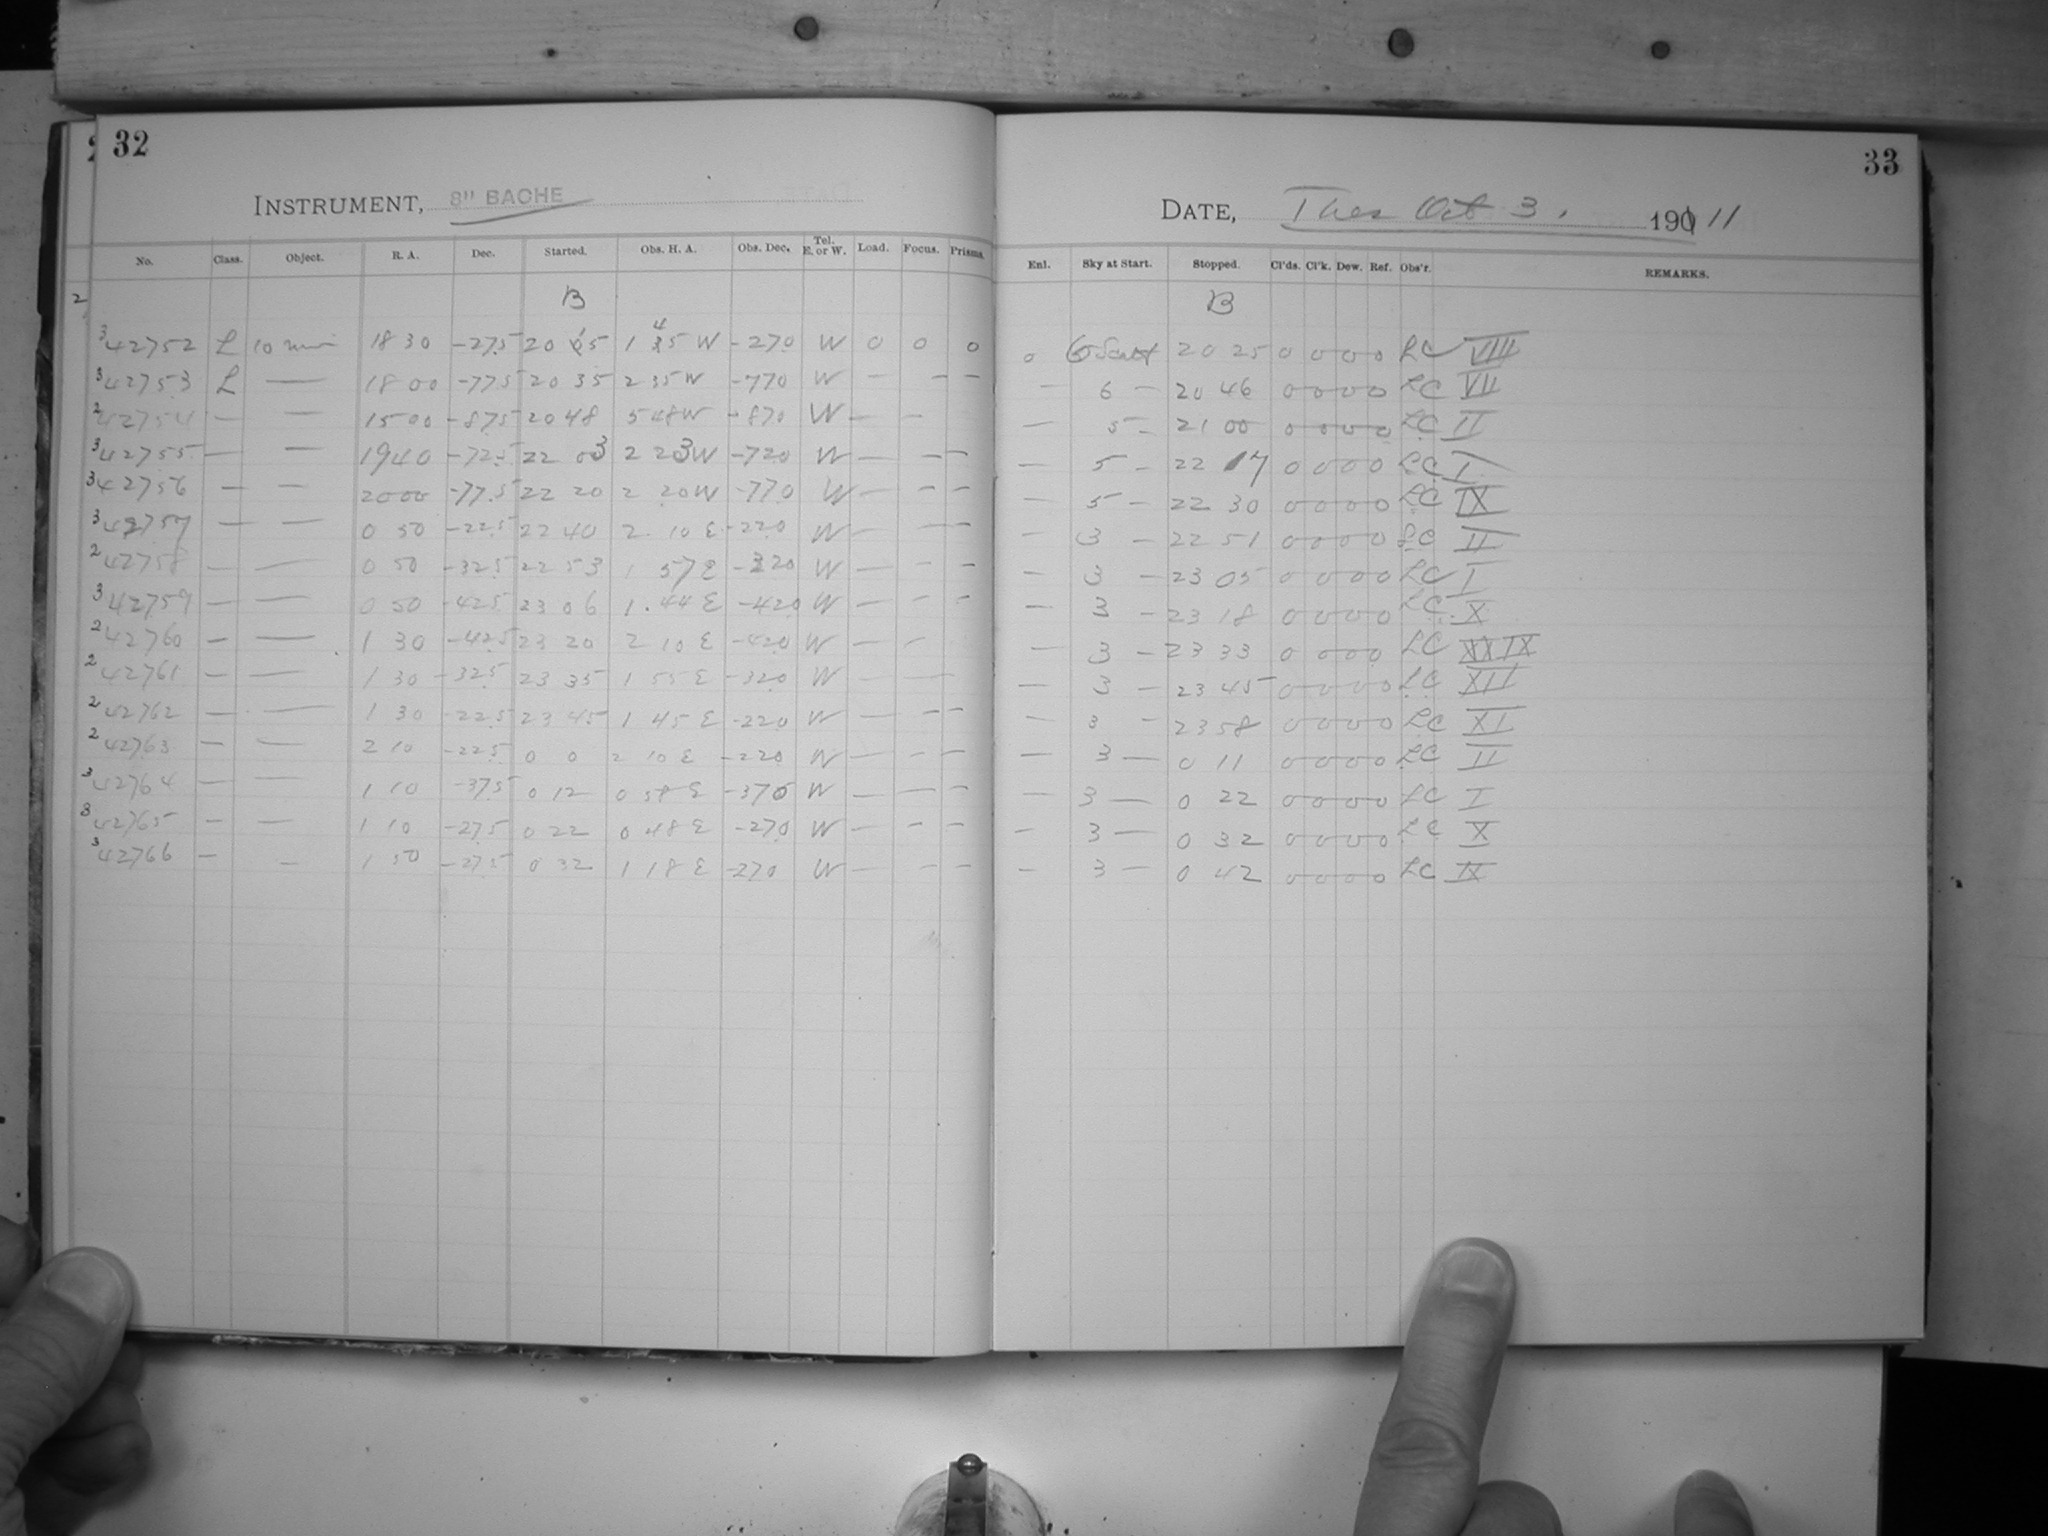 32
INSTRUMENT, 8" BACHE
No. Class. Object. R. A. Dec. Started. Obs. H. A. Obs. Dec. Tel. E. or W. Load. Focus. Prisms.
2 B
3 42752 L 10 min 18 30 -27.5 20 15 1 45 W -27.0 W 0 0 0
3 42753 L — 18 00 -77.5 20 35 2 35 W -77.0 W — — —
2 42754 — — 15 00 -87.5 20 48 5 48 W -87.0 W — —
3 42755 — — 19 40 -72.5 22 03 2 23 W -72.0 W — — —
3 42756 — — 20 00 -77.5 22 20 2 20 W -77.0 W — — —
3 42757 — — 0 50 -22.5 22 40 2 10 E -22.0 W — — —
2 42758 — — 0 50 -32.5 22 53 1 57 E -32.0 W — — —
3 42759 — — 0 50 -42.5 23 06 1.44 E -42.0 W — — —
2 42760 — — 1 30 -42.5 23 20 2 10 E -42.0 W — —
2 42761 — — 1 30 -32.5 23 35 1 55 E -32.0 W — — —
2 42762 — — 1 30 -22.5 23 45 1 45 E -22.0 W — — —
2 42763 — — 2 10 -22.5 0 0 2 10 E -22.0 W — — —
3 42764 — — 1 10 -37.5 0 12 0 58 E -37.0 W — — —
3 42765 — — 1 10 -27.5 0 22 0 48 E -27.0 W — — —
3 42766 — — 1 50 -27.5 0 32 1 18 E -27.0 W — — —
33
DATE, Tues Oct 3. 190 11
Enl. Sky at Start. Stopped. Cl'ds. Cl'k. Dew. Ref. Obs'r. REMARKS.
B
0 6 20 25 0 0 0 0 LC VIII
— 6 — 20 46 0 0 0 0 LC VII
— 5 — 21 00 0 0 0 0 LC II
— 5 — 22 17 0 0 0 0 LC I
— 5 — 22 30 0 0 0 0 LC IX
— 3 — 22 51 0 0 0 0 LC II
— 3 — 23 05 0 0 0 0 LC I
— 3 — 23 18 0 0 0 0 LC X
— 3 — 23 33 0 0 0 0 LC
— 3 — 23 45 0 0 0 0 LC XII
— 3 — 23 58 0 0 0 0 LC XI
— 3 — 0 11 0 0 0 0 LC II
— 3 — 0 22 0 0 0 0 LC I
— 3 — 0 32 0 0 0 0 LC X
— 3 — 0 42 0 0 0 0 LC IX